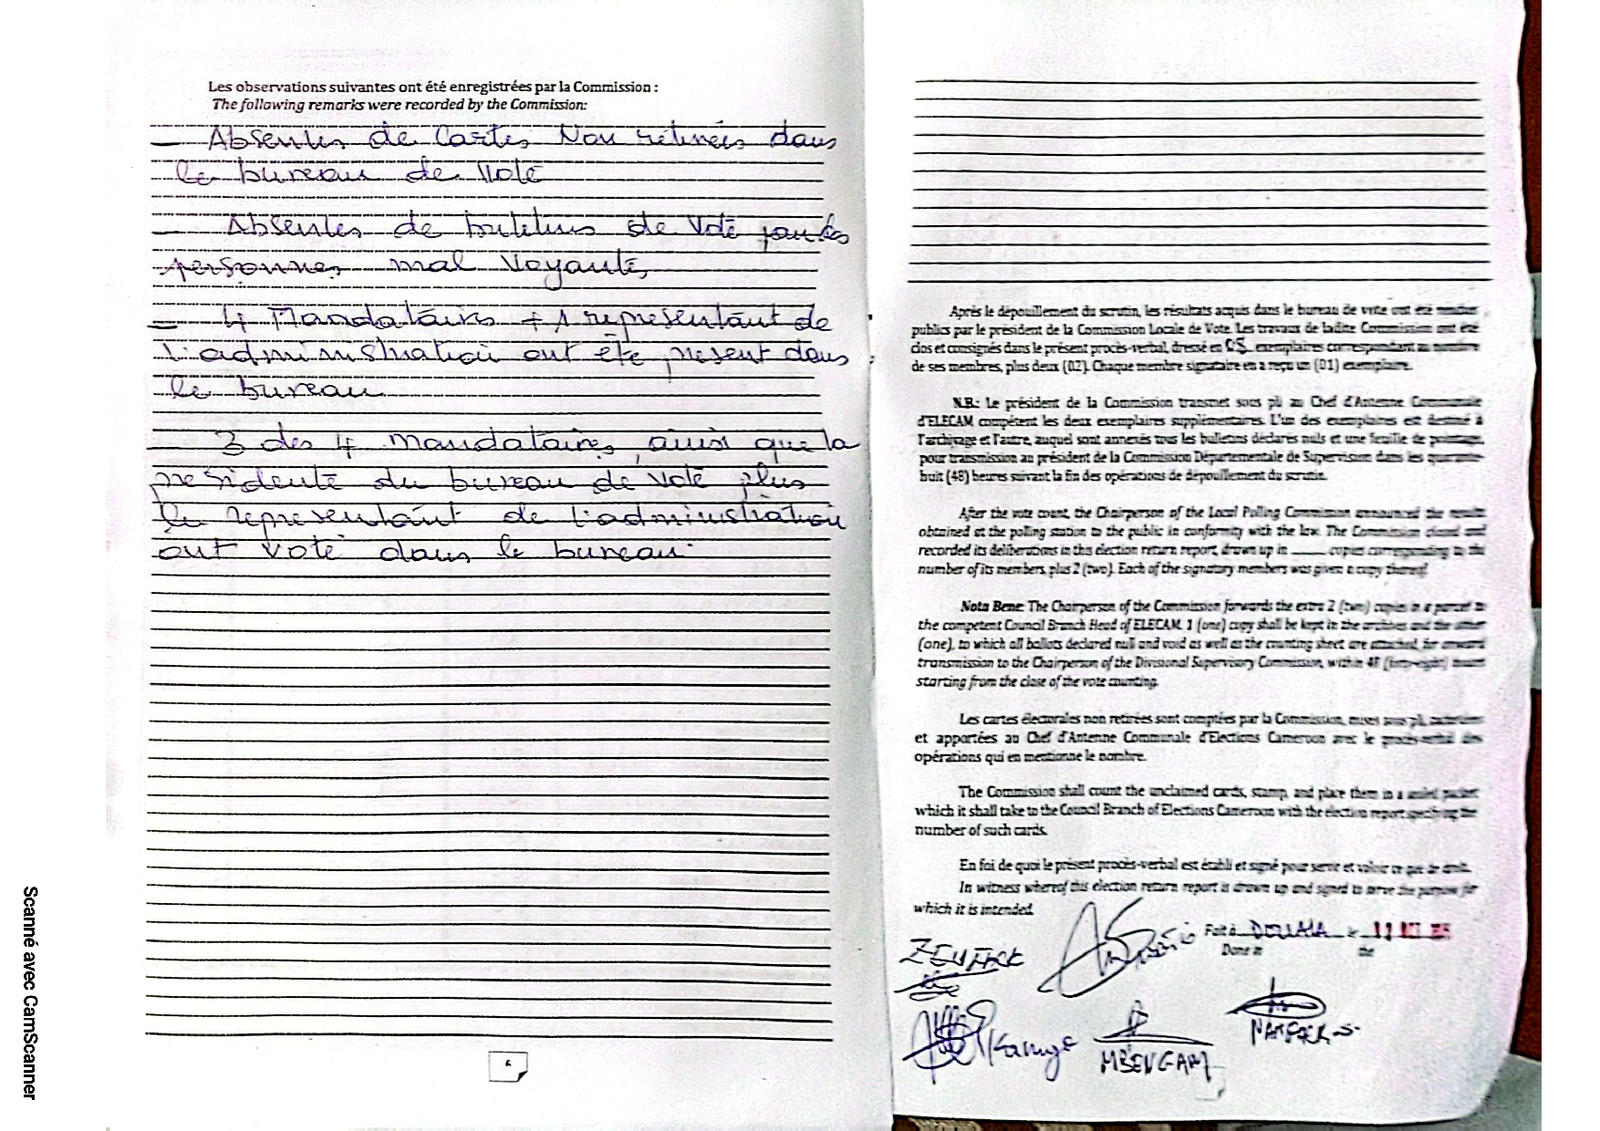 Les observations suivantes ont été enregistrées par la Commission :
The following remarks were recorded by the Commission:
_ Absentes de Cartes Non retirées dans
le bureau de Vote
_ Absentes de bulletins de Vote pour les
personnes mal Voyante,
_ 4 Mandataires + 1 representant de
l'administration ont été present dans
le bureau
_ 3 des 4 mandataires, ainsi que la
presidente du bureau de vote plus
le representant de l'administration
ont voté dans le bureau.
6
Après le dépouillement du scrutin, les résultats acquis dans le bureau de vote ont été rendus
publics par le président de la Commission Locale de Vote. Les travaux de ladite Commission ont été
clos et consignés dans le présent procès-verbal, dressé en 05 exemplaires correspondant au nombre
de ses membres, plus deux (02). Chaque membre signataire en a reçu un (01) exemplaire.
N.B.: Le président de la Commission transmet sous pli au Chef d'Antenne Communale
d'ELECAM compétent les deux exemplaires supplémentaires. L'un des exemplaires est destiné à
l'archivage et l'autre, auquel sont annexés tous les bulletins déclarés nuls et une feuille de pointage,
pour transmission au président de la Commission Départementale de Supervision dans les quarante-
huit (48) heures suivant la fin des opérations de dépouillement du scrutin.
After the vote count, the Chairperson of the Local Polling Commission announced the results
obtained at the polling station to the public in conformity with the law. The Commission closed and
recorded its deliberations in this election return report, drawn up in ____ copies corresponding to the
number of its members, plus 2 (two). Each of the signatory members was given a copy thereof.
Nota Bene: The Chairperson of the Commission forwards the extra 2 (two) copies in a parcel to
the competent Council Branch Head of ELECAM. 1 (one) copy shall be kept in the archives and the other
(one), to which all ballots declared null and void as well as the counting sheet are attached, for onward
transmission to the Chairperson of the Divisional Supervisory Commission, within 48 (forty-eight) hours
starting from the close of the vote counting.
Les cartes électorales non retirées sont comptées par la Commission, mises sous pli,
et apportées au Chef d'Antenne Communale d'Elections Cameroon avec le procès-verbal des
opérations qui en mentionne le nombre.
The Commission shall count the unclaimed cards, stamp, and place them in a sealed packet
which it shall take to the Council Branch of Elections Cameroon with the election report specifying the
number of such cards.
En foi de quoi le présent procès-verbal est établi et signé pour servir et valoir ce que de droit.
In witness whereof this election return report is drawn up and signed to serve the purpose for
which it is intended.
Fait à DOUALA le 12 OCT
Done at the
ZEUFACK
Kamga
MBENGAM
Scanné avec CamScanner